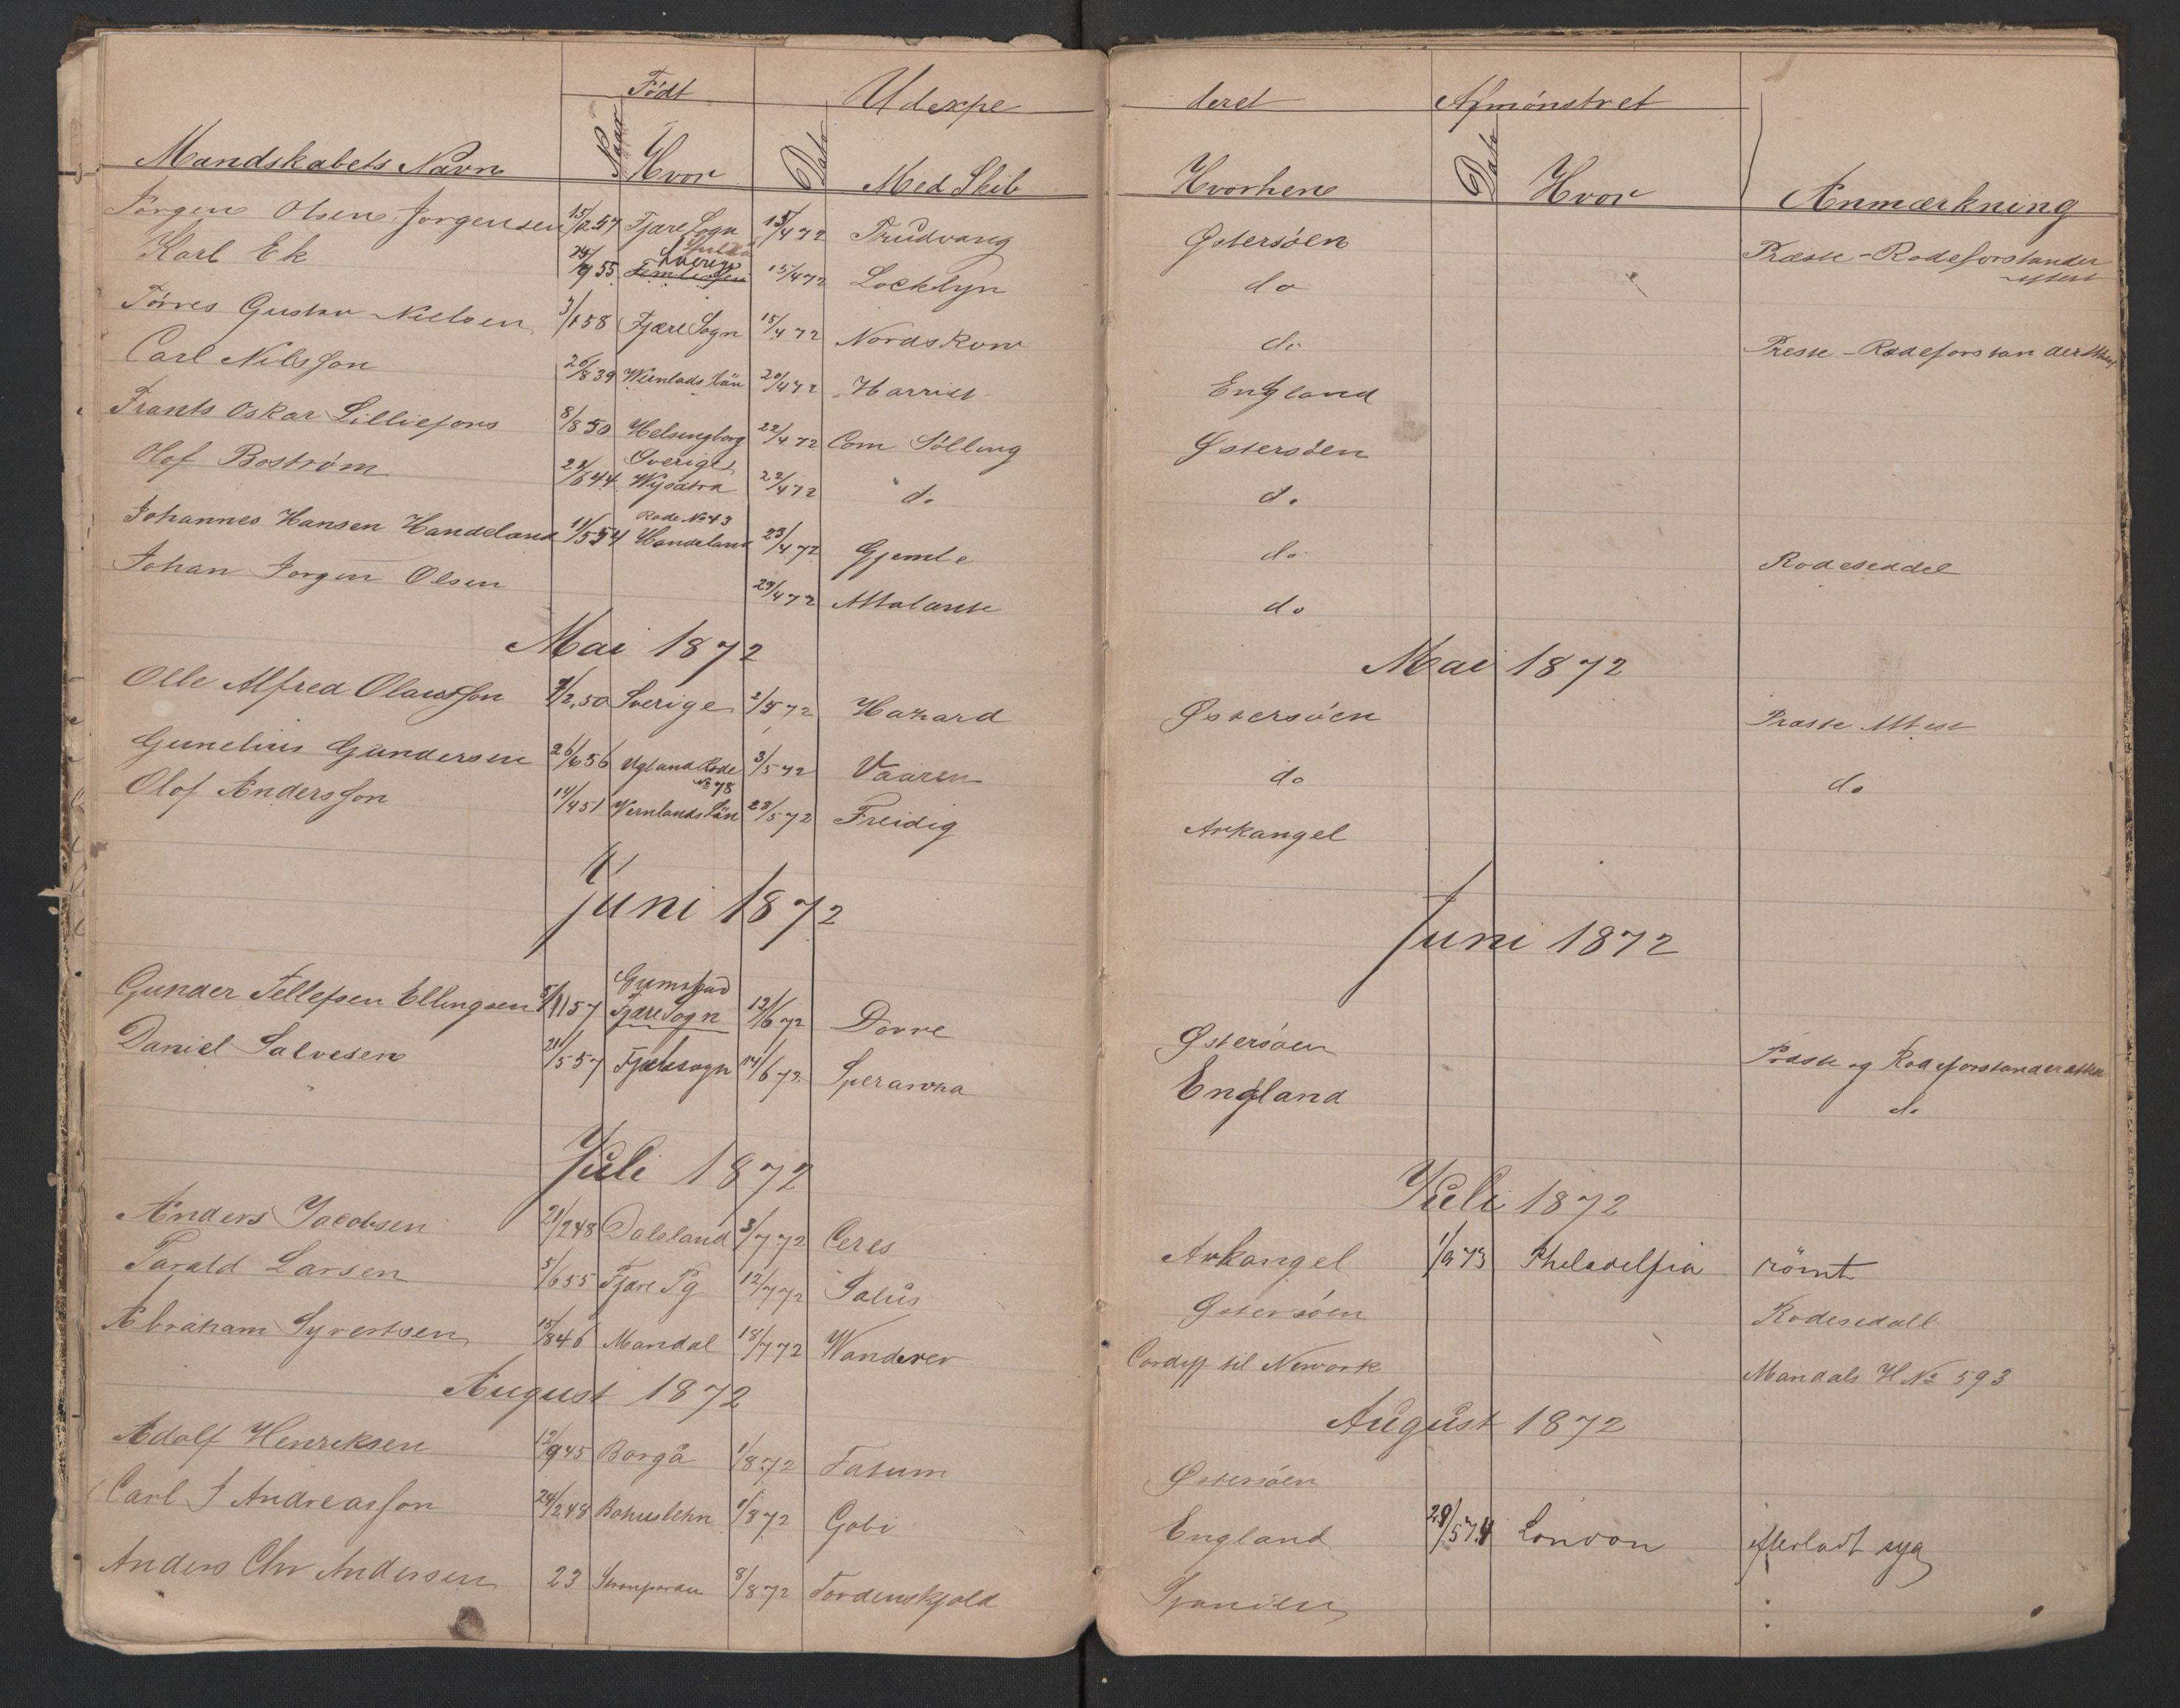 Født Udexpe deret Afmönstret
Mandskabets Navn Naar Hvor Dato Med Skib Hvorhen Dato Hvor Anmærkning
Jörgen Olsen Jorgensen 15/2 57 Fjære Sogn 15/4 72 Thrudvang Østersöen Præste-Rodeforstander attest
Karl Ek 9 55 Sverige 15/4 72 Locklyn do
Törres Gustav Nielsen 3/1 58 Fjære Sogn 15/4 72 Nordskov do Preste-Rodeforstander Attest
Carl Nilsson 26/8 39 Wermlads Län 20/4 72 Harriet England
Frants Oskar Lilliefors 8/8 50 Helsingborg 22/4 72 Com Sölling Østersöen
Olof Boström 24/6 44 Sverige Wysatra 22/4 72 do do
Johannes Hansen Handeland 11/5 54 Rode No 43 Handeland 23/4 72 Gjemle do Rodeseddel
Johan Jorgen Olsen 29/4 72 Attalante do
Mai 1872 Mai 1872
Olle Alfred Olausson 7/2 50 Sverige 2/5 72 Hazard Østersöen Præste Attest
Gunelius Gundersen 26/6 56 Ugland Rode No 78 3/5 72 Vaaren do do
Olof Andersson 14/4 51 Vernlands Län 28/5 72 Freidig Arkangel
Juni 1872 Juni 1872
Gunder Tellefsen Ellingsen 5/11 57 Grimstad Fjære Sogn 12/6 72 Dovre Østersöen Præste og Rodeforstanderattest
Daniel Salvesen 21/5 57 Fjæresogn 14/6 72 Speranza England do
Juli 1872 Juli 1872
Anders Jacobsen 21/2 48 Dalsland 3/7 72 Ceres Arkangel 1/9 73 Philadelfia römt
Tarald Larsen 5/6 55 Fjære Pg 12/7 72 Salus Østersöen Rodesedall
Abraham Syvertsen 15/8 46 Mandal 18/7 72 Wanderer Cardiff til Newørk Mandals H No 593
August 1872 August 1872
Adolf Henriksen 12/9 45 Borgå 1/8 72 Fatum Østersöen
Carl J Andreasson 24/2 48 Bohuslehn 1/8 72 Gobi England 29/5 74 London efterladt syg
Anders Chr Andersen 23 8/8 72 Tordenskjold